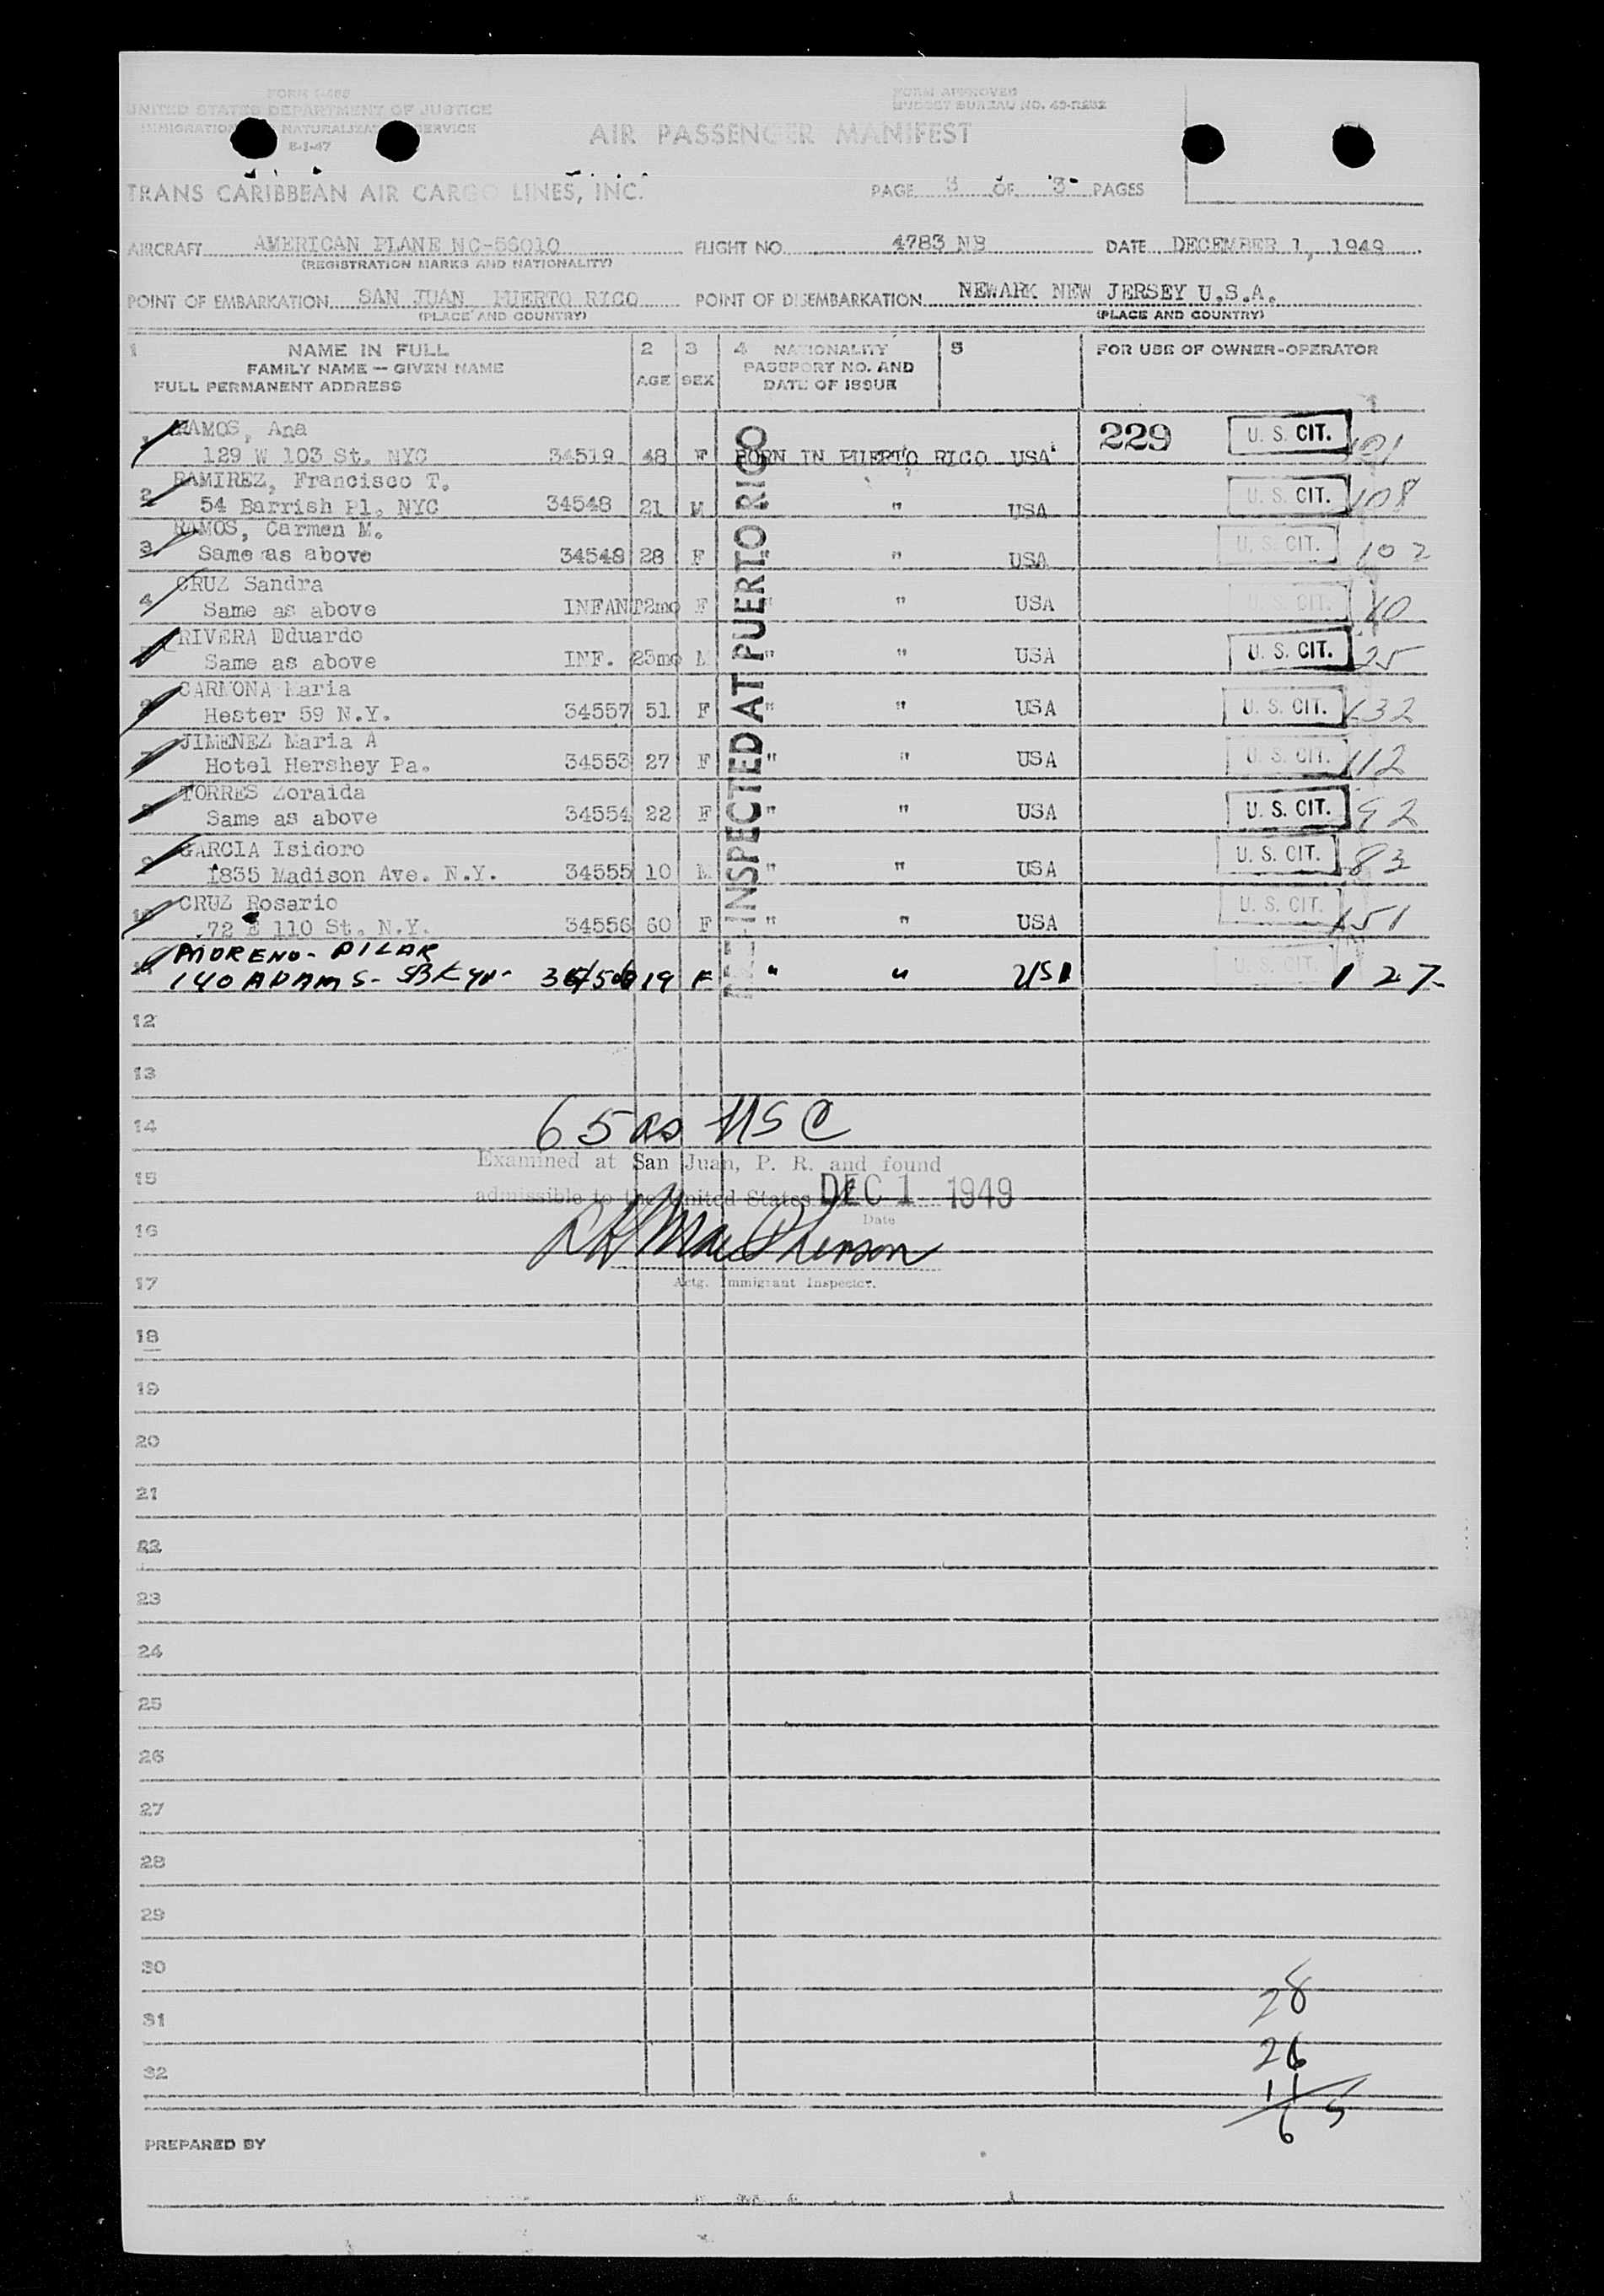 FORM I-466
UNITED STATES DEPARTMENT OF JUSTICE
IMMIGRATION NATURALIZATION SERVICE
8-1-47
FORM APPROVED
BUDGET BUREAU NO. 43-R282
AIR PASSENGER MANIFEST
TRANS CARIBBEAN AIR CARGO LINES, INC.
PAGE 3 OF 3 PAGES
AIRCRAFT AMERICAN PLANE NC-56010 FLIGHT NO. 4783 NB DATE DECEMBER 1, 1949
(REGISTRATION MARKS AND NATIONALITY)
POINT OF EMBARKATION SAN JUAN PUERTO RICO POINT OF DISEMBARKATION NEWARK NEW JERSEY U.S.A.
(PLACE AND COUNTRY) (PLACE AND COUNTRY)
1 NAME IN FULL 2 3 4 NATIONALITY 5 FOR USE OF OWNER-OPERATOR
FAMILY NAME — GIVEN NAME PASSPORT NO. AND
FULL PERMANENT ADDRESS AGE SEX DATE OF ISSUE
1 RAMOS, Ana 229 U. S. CIT.
129 W 103 St. NYC 34519 48 F BORN IN PUERTO RICO USA 121
2 RAMIREZ, Francisco T. U. S. CIT. 108
54 Barrish Pl. NYC 34548 21 M " USA
3 RAMOS, Carmen M. U. S. CIT. 102
Same as above 34548 28 F " USA
4 CRUZ Sandra U. S. CIT. 10
Same as above INFANT 2mo F " " USA
RIVERA Eduardo U. S. CIT. 25
Same as above INF. 23mo M " " USA
CARMONA Maria U. S. CIT. 132
Hester 59 N.Y. 34557 51 F " " USA
JIMENEZ Maria A U. S. CIT. 112
Hotel Hershey Pa. 34553 27 F " " USA
TORRES Zoraida U. S. CIT. 92
Same as above 34554 22 F " " USA
9 GARCIA Isidoro U. S. CIT. 83
1835 Madison Ave. N.Y. 34555 10 M " " USA
10 CRUZ Rosario U. S. CIT. 151
72 E 110 St. N.Y. 34556 60 F " " USA
MORENO- PILAR U. S. CIT.
140 ADAMS- 19 F " " USA 127
INSPECTED AT PUERTO RICO
12
13
14 65 as USC
Examined at San Juan, P. R. and found
15
admissible to the United States DEC 1 1949
Date
16
17 Actg. Immigrant Inspector.
18
19
20
21
22
23
24
25
26
27
28
29
30 28
31
32 26
11
65
PREPARED BY